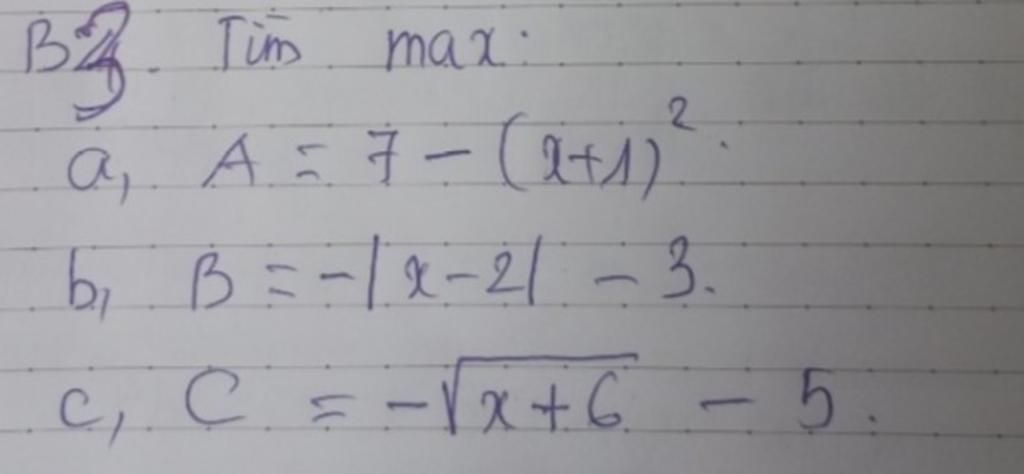 B3. Tìm max:
a, A = 7 - (x+1)².
b, B = -|x-2| - 3.
c, C = -√(x+6) - 5.